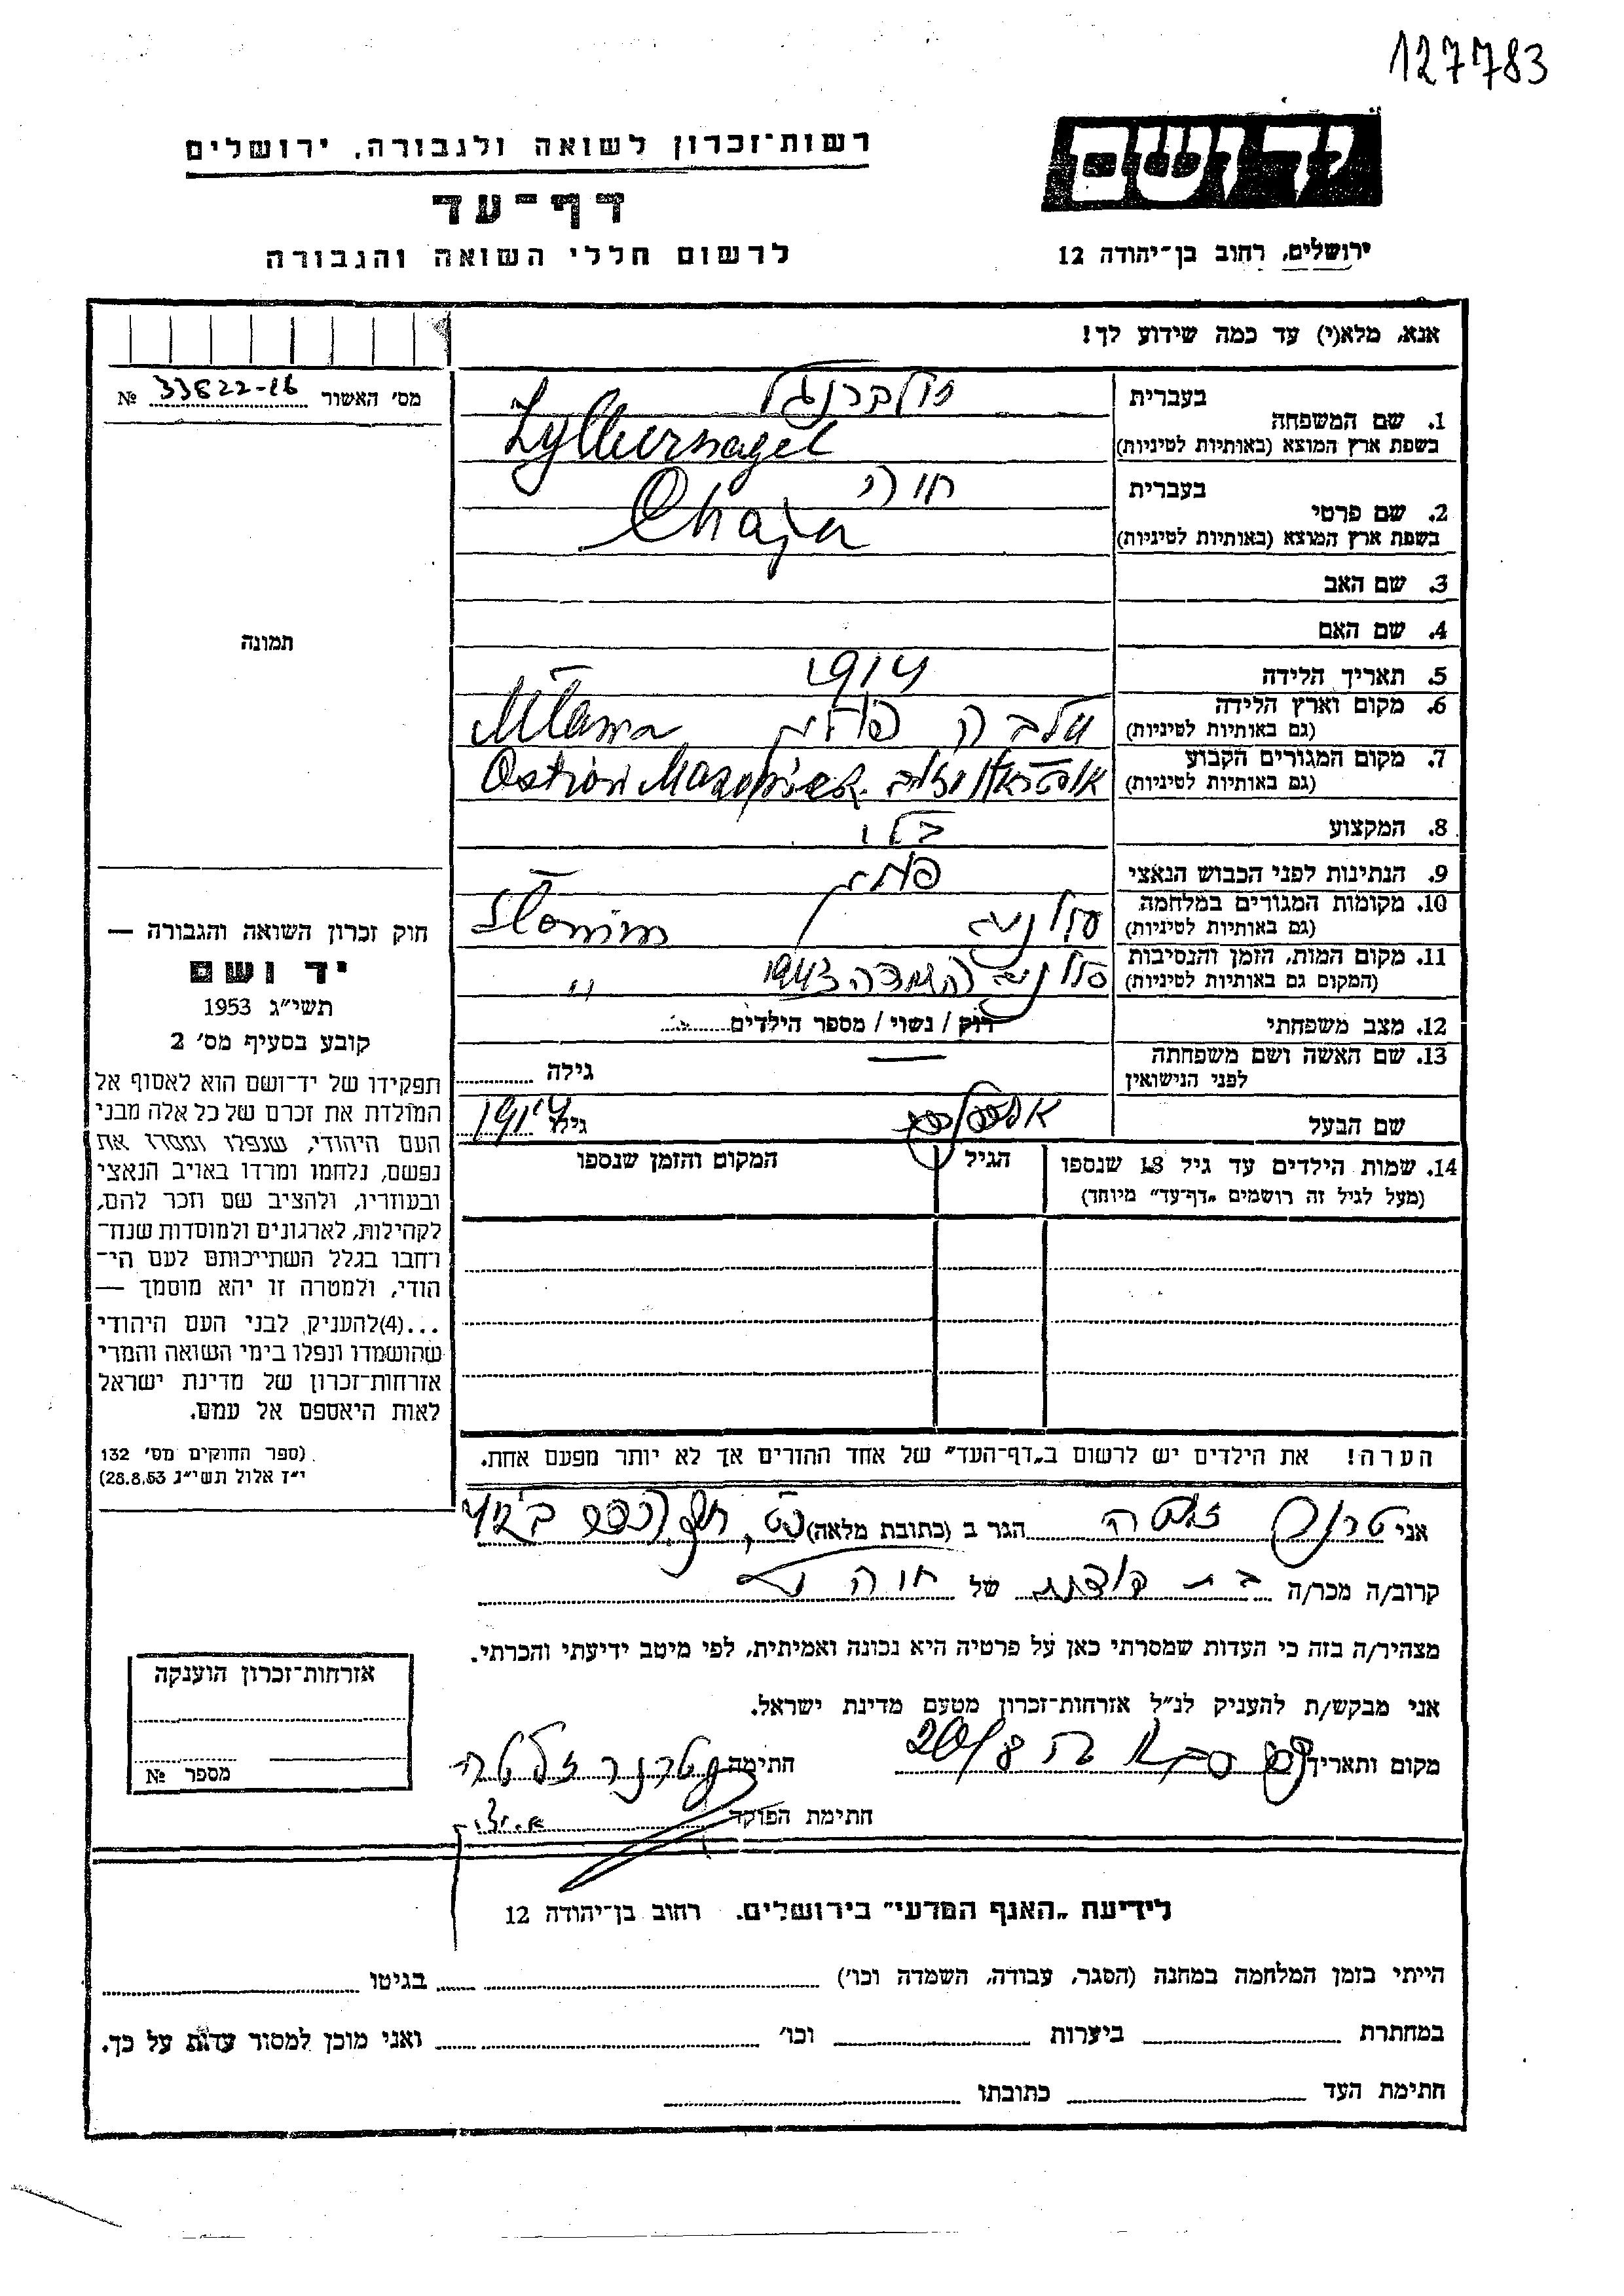 127783
יד ושם
רשות־זכרון לשואה ולגבורה, ירושלים
דף־עד
לרשום חללי השואה והגבורה
ירושלים, רחוב בן־יהודה 12
אנא, מלא(י) עד כמה שידוע לך!
מס׳ האשור 33822-16 №
תמונה
1. שם המשפחה
בעברית זילברנגל
בשפת ארץ המוצא (באותיות לטיניות) Zylbernagel
2. שם פרטי
בעברית חיה
בשפת ארץ המוצא (באותיות לטיניות) Chaja
3. שם האב
4. שם האם
5. תאריך הלידה 1914
6. מקום וארץ הלידה
(גם באותיות לטיניות) פולין Mława
7. מקום המגורים הקבוע
(גם באותיות לטיניות) Ostrów
8. המקצוע
9. הנתינות לפני הכבוש הנאצי פולין
10. מקומות המגורים במלחמה
(גם באותיות לטיניות) סלונים Słonim
11. מקום המות, הזמן והנסיבות
(המקום גם באותיות לטיניות) סלונים השמדה 1943 "
12. מצב משפחתי רוק / נשוי / מספר הילדים
13. שם האשה ושם משפחתה
לפני הנישואין — גילה
שם הבעל גילו 1914
14. שמות הילדים עד גיל 18 שנספו
(מעל לגיל זה רושמים „דף־עד״ מיוחד)
הגיל
המקום והזמן שנספו
חוק זכרון השואה והגבורה —
יד ושם
תשי״ג 1953
קובע בסעיף מס׳ 2
תפקידו של יד־ושם הוא לאסוף אל
המולדת את זכרם של כל אלה מבני
העם היהודי, שנפלו ומסרו את
נפשם, נלחמו ומרדו באויב הנאצי
ובעוזריו, ולהציב שם וזכר להם,
לקהילות, לארגונים ולמוסדות שנח־
רחבו בגלל השתייכותם לעם הי־
הודי, ולמטרה זו יהא מוסמך —
...(4)להעניק לבני העם היהודי
שהושמדו ונפלו בימי השואה והמרי
אזרחות־זכרון של מדינת ישראל
לאות היאספם אל עמם.
(ספר החוקים מס׳ 132
י״ז אלול תשי״ג 28.8.53)
הערה! את הילדים יש לרשום ב„דף־העד״ של אחד ההורים אך לא יותר מפעם אחת.
אני הגר ב (כתובת מלאה)
קרוב/ה מכר/ה בת דודתה של חיה
מצהיר/ה בזה כי העדות שמסרתי כאן על פרטיה היא נכונה ואמיתית, לפי מיטב ידיעתי והכרתי.
אני מבקש/ת להעניק לנ״ל אזרחות־זכרון מטעם מדינת ישראל.
מקום ותאריך סבא 20/8 חתימה
חתימת הפוקד
אזרחות־זכרון הוענקה
מספר №
לידיעת „האגף המדעי״ בירושלים. רחוב בן־יהודה 12
הייתי בזמן המלחמה במחנה (הסגר, עבודה, השמדה וכו׳) בגיטו
במחתרת ביערות וכו׳ ואני מוכן למסור עדות על כך.
חתימת העד כתובתו